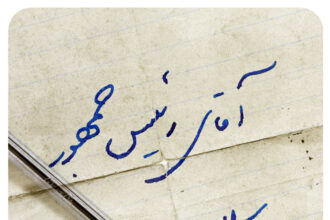 آقای رئیس جمهور